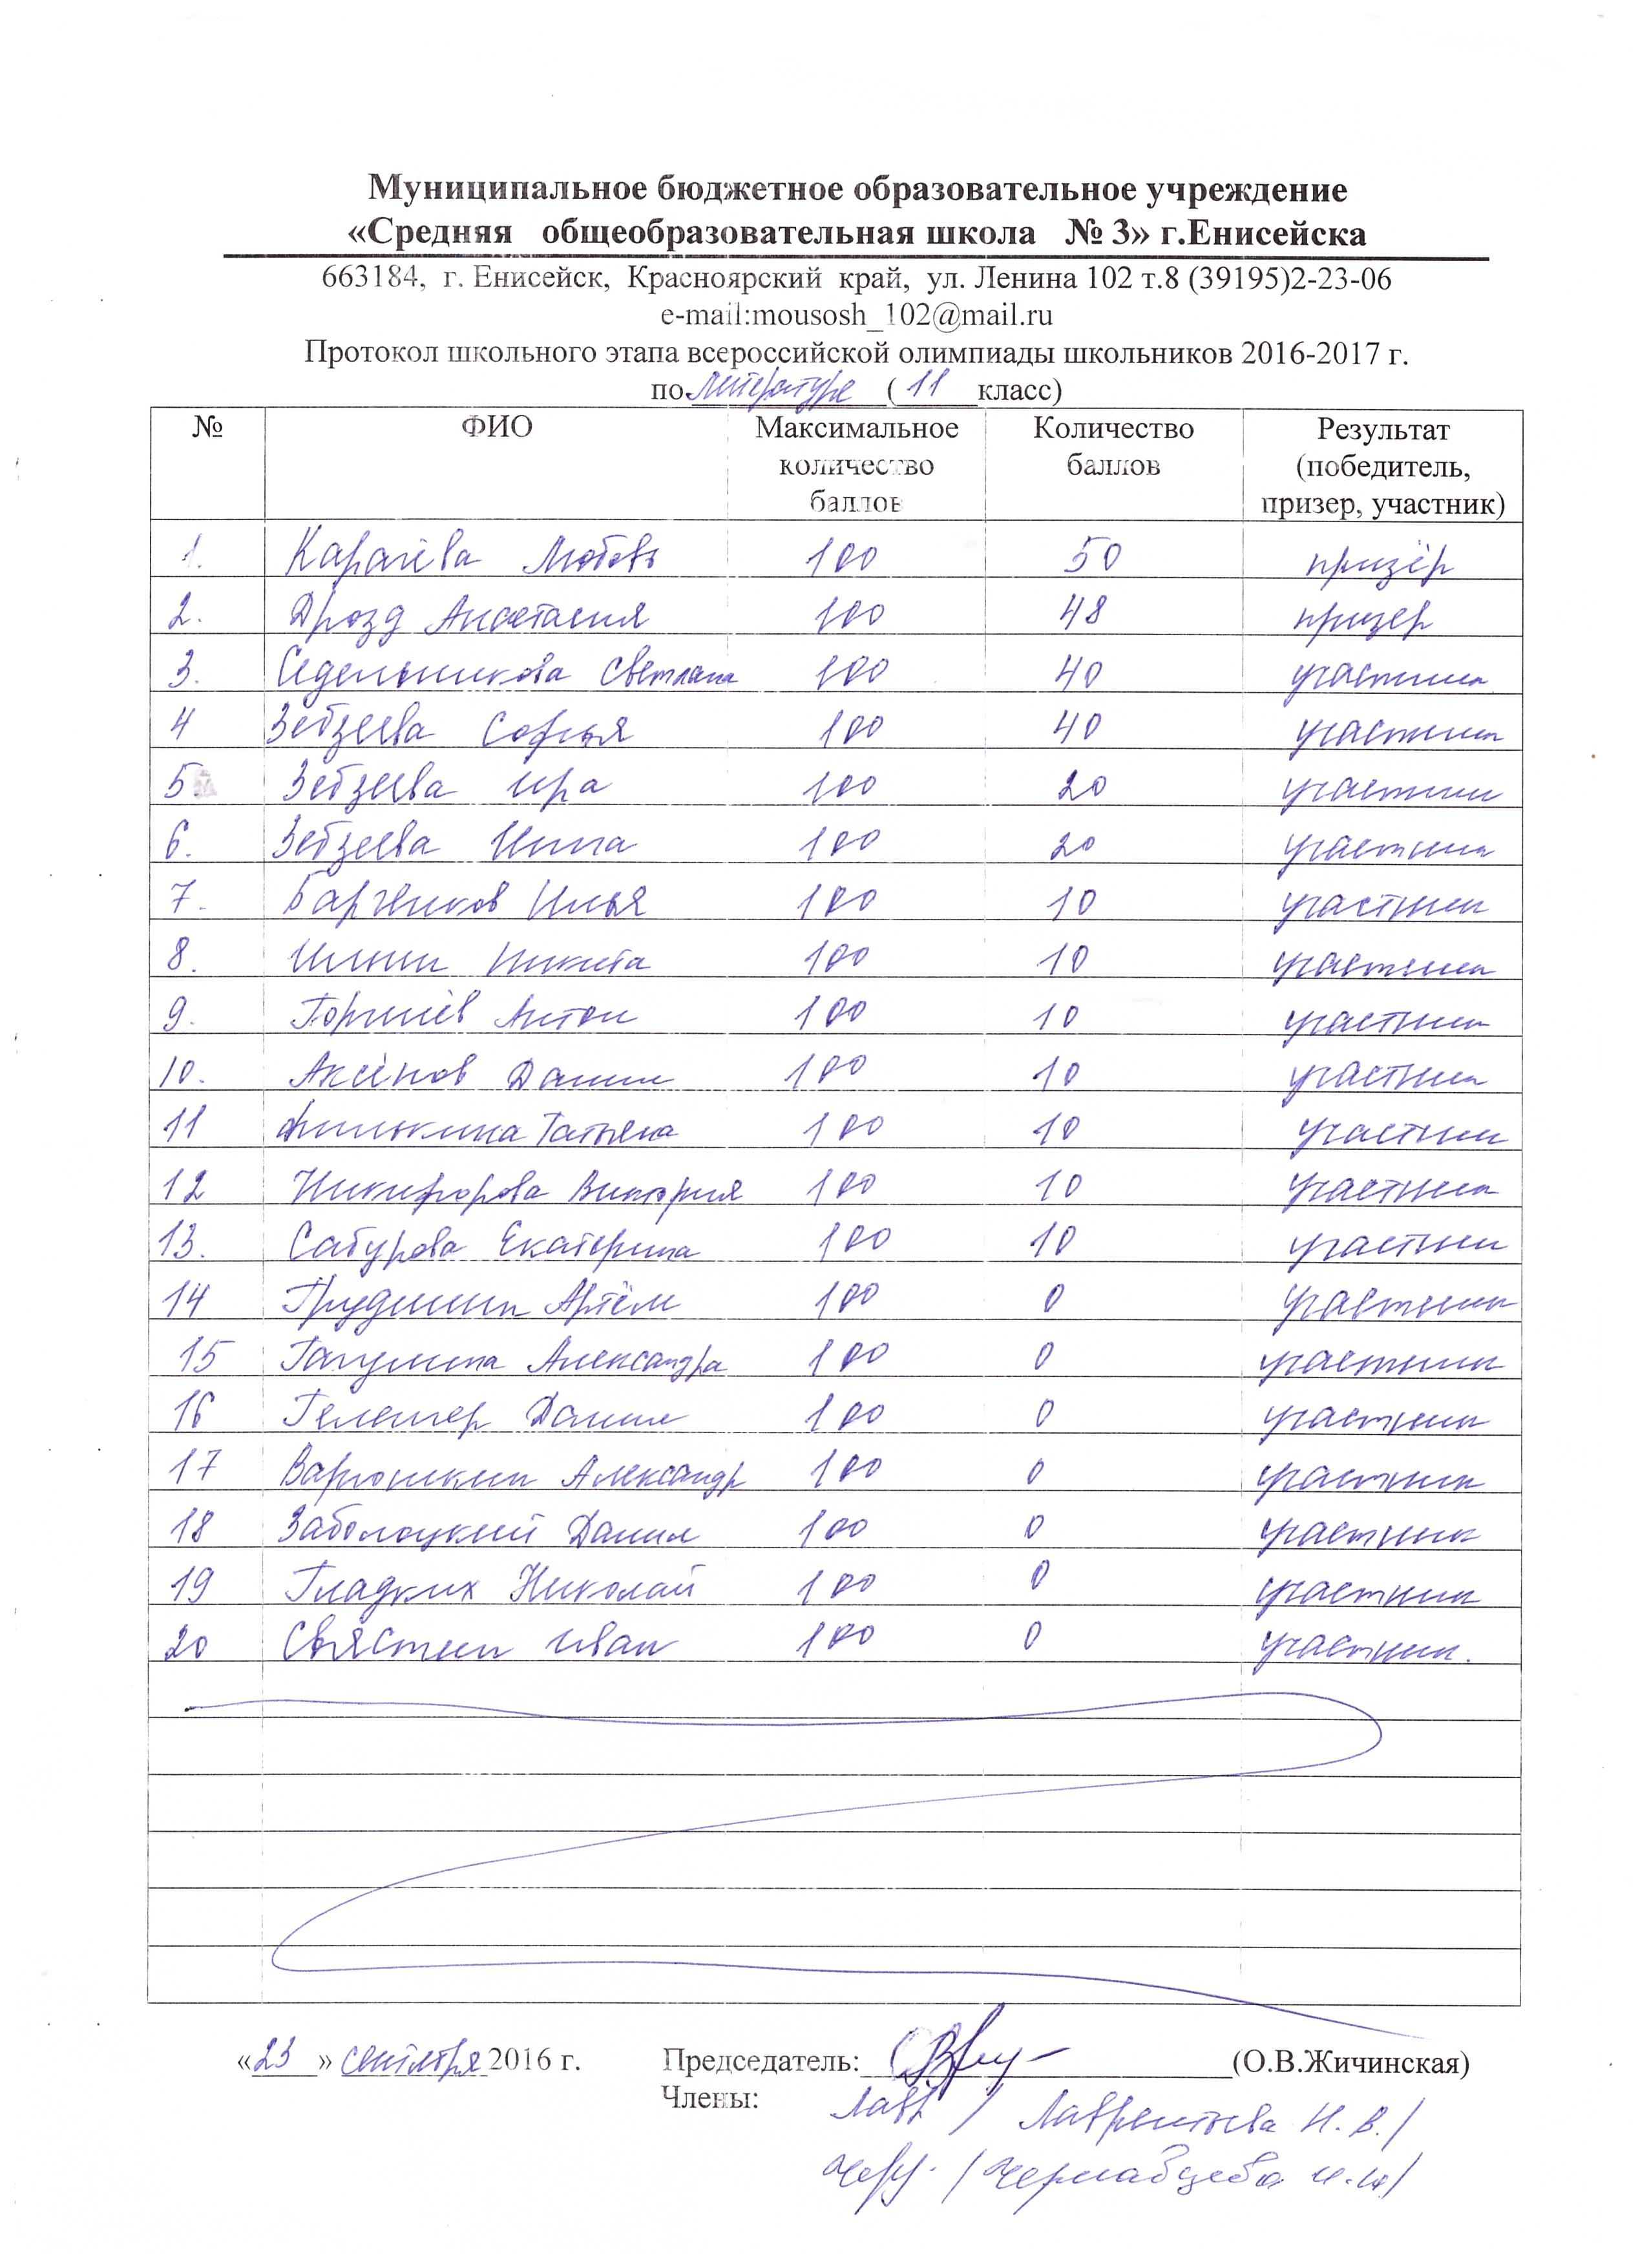 Муниципальное бюджетное образовательное учреждение
«Средняя общеобразовательная школа № 3» г.Енисейска
663184, г. Енисейск, Красноярский край, ул. Ленина 102 т.8 (39195)2-23-06
e-mail:mousosh_102@mail.ru
Протокол школьного этапа всероссийской олимпиады школьников 2016-2017 г.
по литературе ( 11 класс)
№ ФИО Максимальное количество баллов Количество баллов Результат (победитель, призер, участник)
1. Карачёва Любовь 100 50 призёр
2. Дрозд Анастасия 100 48 призер
3. Седельникова Светлана 100 40 участник
4 Зебзеева Софья 100 40 участник
5 Зебзеева Ира 100 20 участник
6. Зебзеева Инна 100 20 участник
7. Барченков Илья 100 10 участник
8. Никита 100 10 участник
9. Горшнёв Антон 100 10 участник
10. Аксёнов Данил 100 10 участник
11 Татьяна 100 10 участник
12 Никифорова Виктория 100 10 участник
13. Сабурова Екатерина 100 10 участник
14 Грудинин Артём 100 0 участник
15 Александра 100 0 участник
16 Данил 100 0 участник
17 Варюшкин Александр 100 0 участник
18 Заболоцкий Данил 100 0 участник
19 Гладких Николай 100 0 участник
20 Иван 100 0 участник.
«23» сентября 2016 г. Председатель: (О.В.Жичинская)
Члены: Лавр / Лаврентьева Н.В./
/